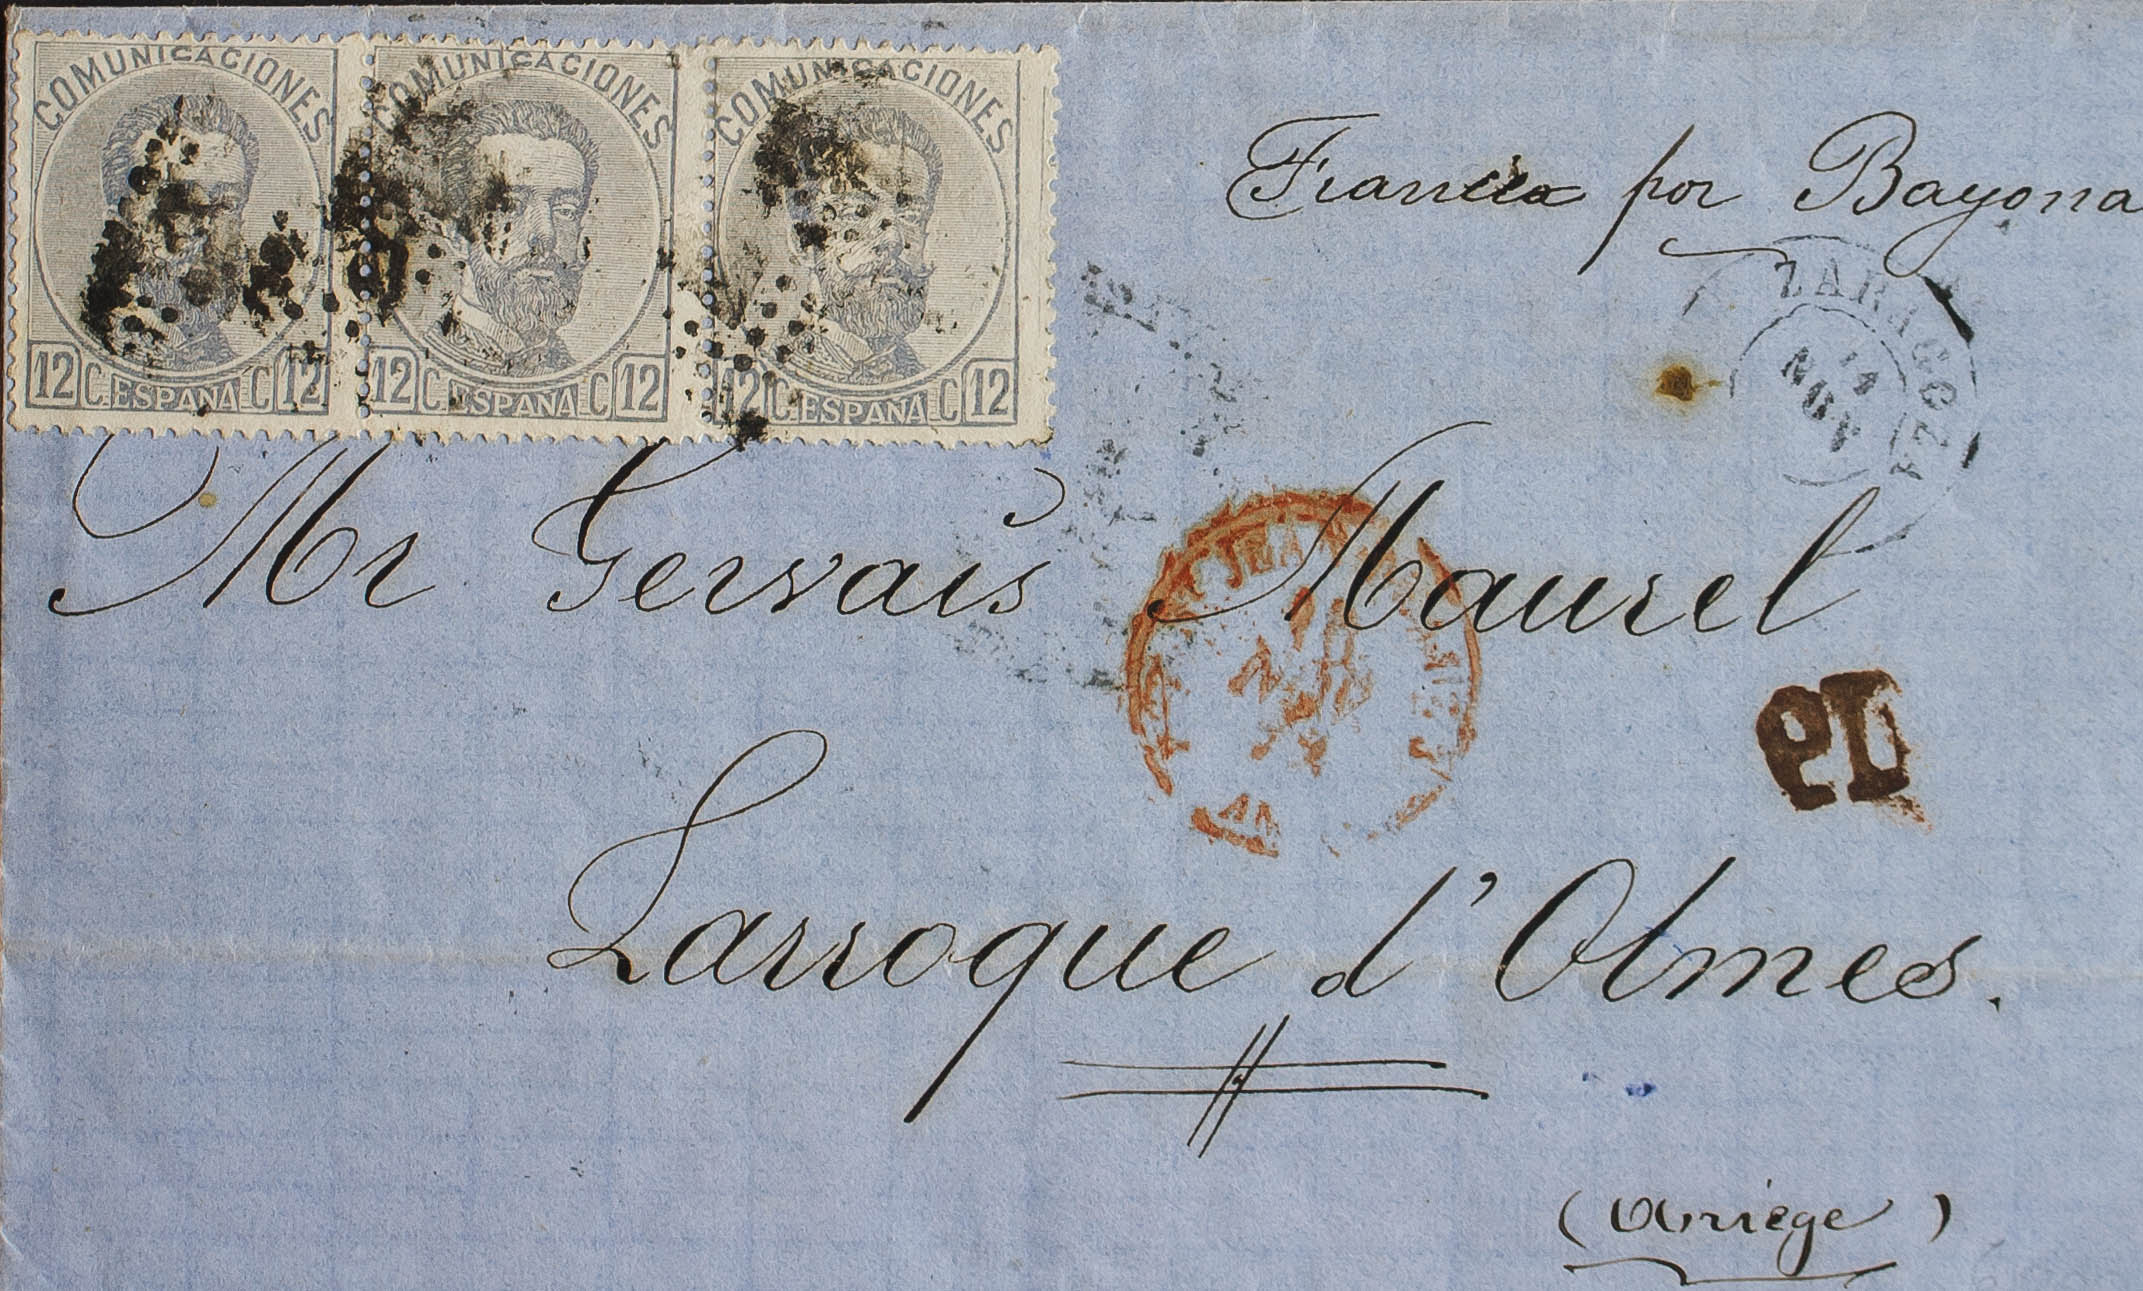 COMUNICACIONES COMUNICACIONES COMUNICACIONES
12 C. ESPAÑA C 12 12 C. ESPAÑA C 12 12 C. ESPAÑA C 12
Francia por Bayona
ZARAGOZA
14
NOV
Mr Gervais Maurel
PD
Larroque d'Olmes.
(Ariége)